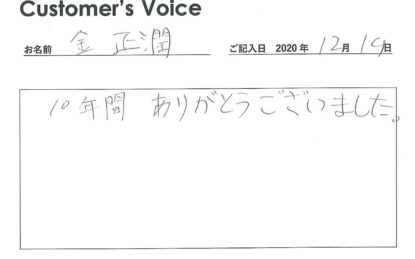 Customer's Voice
お名前 金 正潤 ご記入日 2020 年 12月 19日
10年間 ありがとうございました。